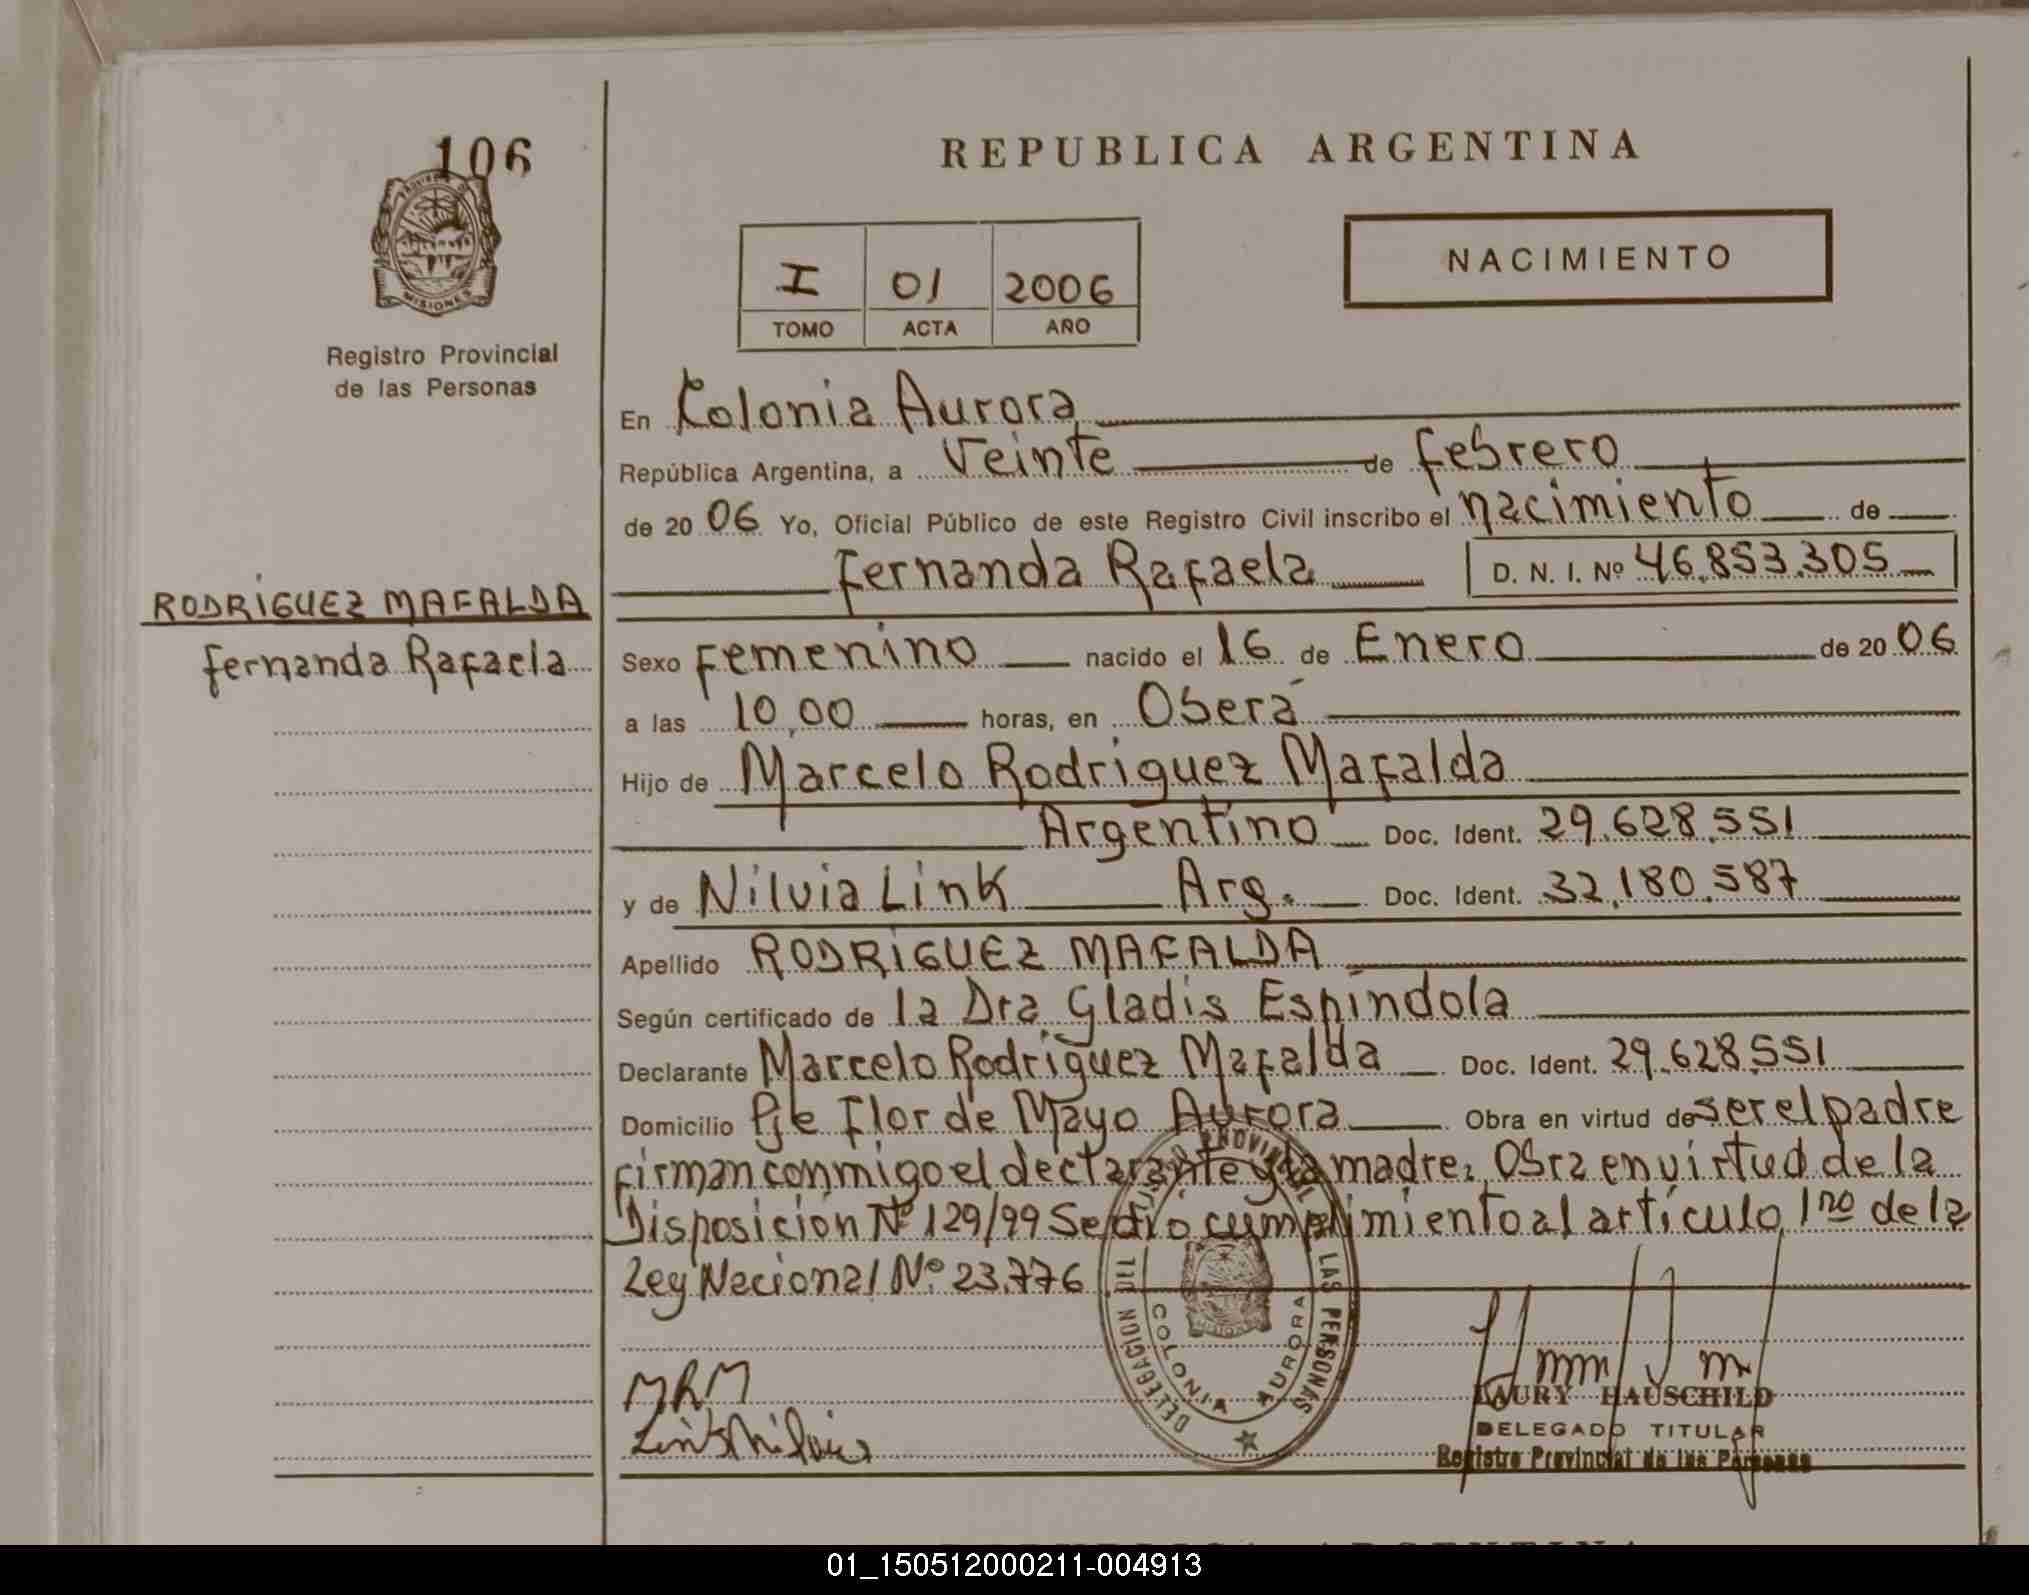 106
MISIONES
Registro Provincial
de las Personas
RODRIGUEZ MAFALDA
Fernanda Rafaela
REPUBLICA ARGENTINA
I 01 2006
TOMO ACTA AÑO
NACIMIENTO
En Colonia Aurora
República Argentina, a Veinte de febrero
de 2006 Yo, Oficial Público de este Registro Civil inscribo el nacimiento de
Fernanda Rafaela D. N. I. Nº 46.853.305
Sexo Femenino nacido el 16 de Enero de 2006
a las 10,00 horas, en Oberá
Hijo de Marcelo Rodriguez Mafalda
Argentino Doc. Ident. 29.628.551
y de Nilvia Link Arg. Doc. Ident. 32.180.587
Apellido RODRIGUEZ MAFALDA
Según certificado de la Dra Gladis Espindola
Declarante Marcelo Rodriguez Mafalda Doc. Ident. 29.628.551
Domicilio Pje Flor de Mayo Aurora Obra en virtud de ser el padre
firman conmigo el declarante y la madre. Obra en virtud de la
Disposición Nº 129/99 Se dió cumplimiento al artículo 1ro de la
Ley Nacional Nº 23.776
DELEGACION
LAS PERSONAS
COLONIA AURORA
MISIONES
MRM
Link Nilvia
LAURY HAUSCHILD
DELEGADO TITULAR
Registro Provincial de las Personas
REPUBLICA ARGENTINA
01_150512000211-004913